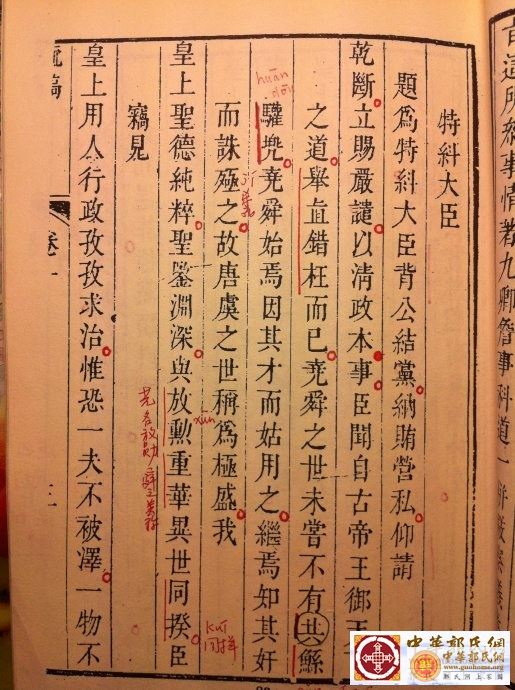 事情着九卿詹事科道一
特科大臣
題爲特科大臣背公結黨納賄營私仰請
乾斷立賜嚴譴以清政本事臣聞自古帝王御
之道舉直錯枉而已堯舜之世未嘗不有共鯀
huān
dōu
驩兜堯舜始焉因其才而姑用之繼焉知其奸
而誅殛之故唐虞之世稱爲極盛我
xūn
皇上聖德純粹聖鑒淵深與放勳重華異世同揆臣
kuí
同样
竊見
皇上用人行政孜孜求治惟恐一夫不被澤一物不
疏稿
卷一
中華郭氏網
中華郭氏網